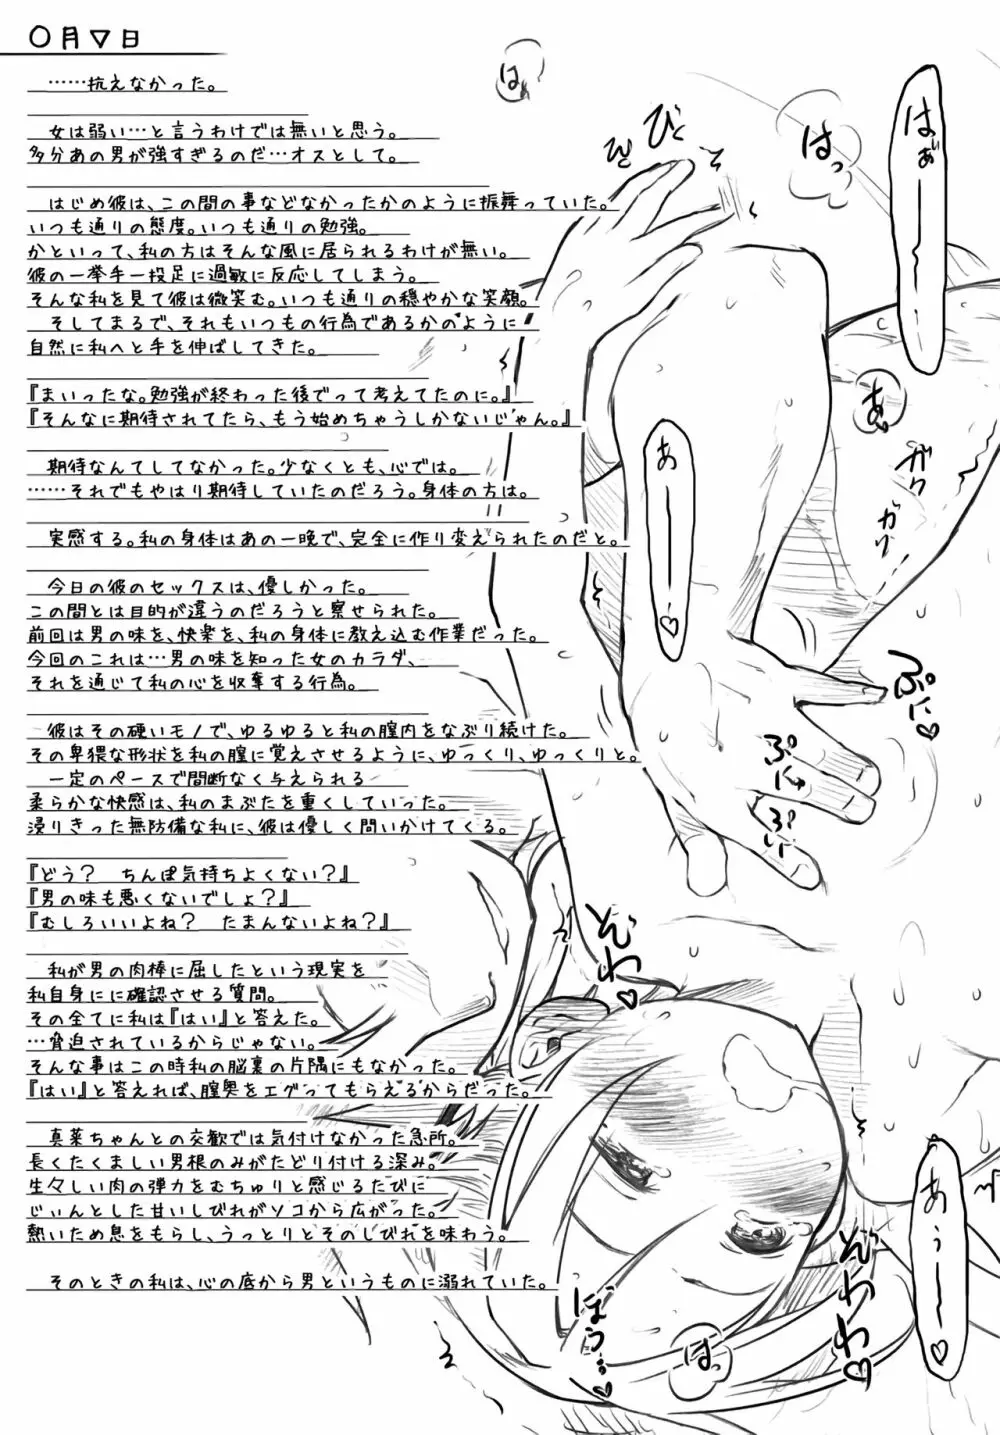 〇月▽日
……抗えなかった。
女は弱い…と言うわけでは無いと思う。
多分あの男が強すぎるのだ…オスとして。
はじめ彼は、この間の事などなかったかのように振舞っていた。
いつも通りの態度。いつも通りの勉強。
かといって、私の方はそんな風に居られるわけが無い。
彼の一挙手一投足に過敏に反応してしまう。
そんな私を見て彼は微笑む。いつも通りの穏やかな笑顔。
そしてまるで、それもいつもの行為であるかのように
自然に私へと手を伸ばしてきた。
『まいったな。勉強が終わった後でって考えてたのに。』
『そんなに期待されてたら、もう始めちゃうしかないじゃん。』
期待なんてしてなかった。少なくとも、心では。
……それでもやはり期待していたのだろう。身体の方は。
実感する。私の身体はあの一晩で、完全に作り変えられたのだと。
今日の彼のセックスは、優しかった。
この間とは目的が違うのだろうと察せられた。
前回は男の味を、快楽を、私の身体に教え込む作業だった。
今回のこれは…男の味を知った女のカラダ、
それを通じて私の心を収奪する行為。
彼はその硬いモノで、ゆるゆると私の膣内をなぶり続けた。
その卑猥な形状を私の膣に覚えさせるように、ゆっくり、ゆっくりと。
一定のペースで間断なく与えられる
柔らかな快感は、私のまぶたを重くしていった。
浸りきった無防備な私に、彼は優しく問いかけてくる。
『どう？　ちんぽ気持ちよくない？』
『男の味も悪くないでしょ？』
『むしろいいよね？　たまんないよね？』
私が男の肉棒に屈したという現実を
私自身にに確認させる質問。
その全てに私は『はい』と答えた。
…脅迫されているからじゃない。
そんな事はこの時私の脳裏の片隅にもなかった。
『はい』と答えれば、膣奥をエグってもらえるからだった。
真菜ちゃんとの交歓では気付けなかった急所。
長くたくましい男根のみがたどり付ける深み。
生々しい肉の弾力をむちゅりと感じるたびに
じぃんとした甘いしびれがソコから広がった。
熱いため息をもらし、うっとりとそのしびれを味わう。
そのときの私は、心の底から男というものに溺れていた。
はぁ
びくん
はっ
はぁぁーーー
あっ
ガク
ガク
あーーー♡
ぷに♡
ぷにゅ
ぷに
ぞわ♡
あぅーー♡
ぞわわ♡
ぽぅ…♡
はっ